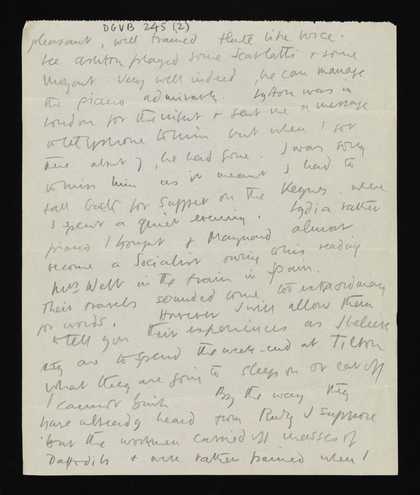 DGVB 245 (2)
pleasant, well trained flute like voice.
Lee Ashton played some Scarlatti & some
Mozart very well indeed, he can manage
the piano admirably. Lytton was in
London for the night & sent me a message
to telephone to him but when I got
there about 7, he had gone. I was sorry
to miss him as it meant I had to
fall back for supper on the Keynes. where
I spent a quiet evening. Lydia rather
I thought & Maynard almost
become a Socialist owing to his reading
Mrs Webb in the train in Spain.
Their travels sounded too extraordinary
for words. However I will allow them
to tell you their experiences as I believe
they are to spend the week-end at Tilton
what they are going to sleep on or eat off
I cannot think. By the way they
have already heard from Ruby I suppose
that the workmen carried off masses of
Daffodils & were rather pained when I